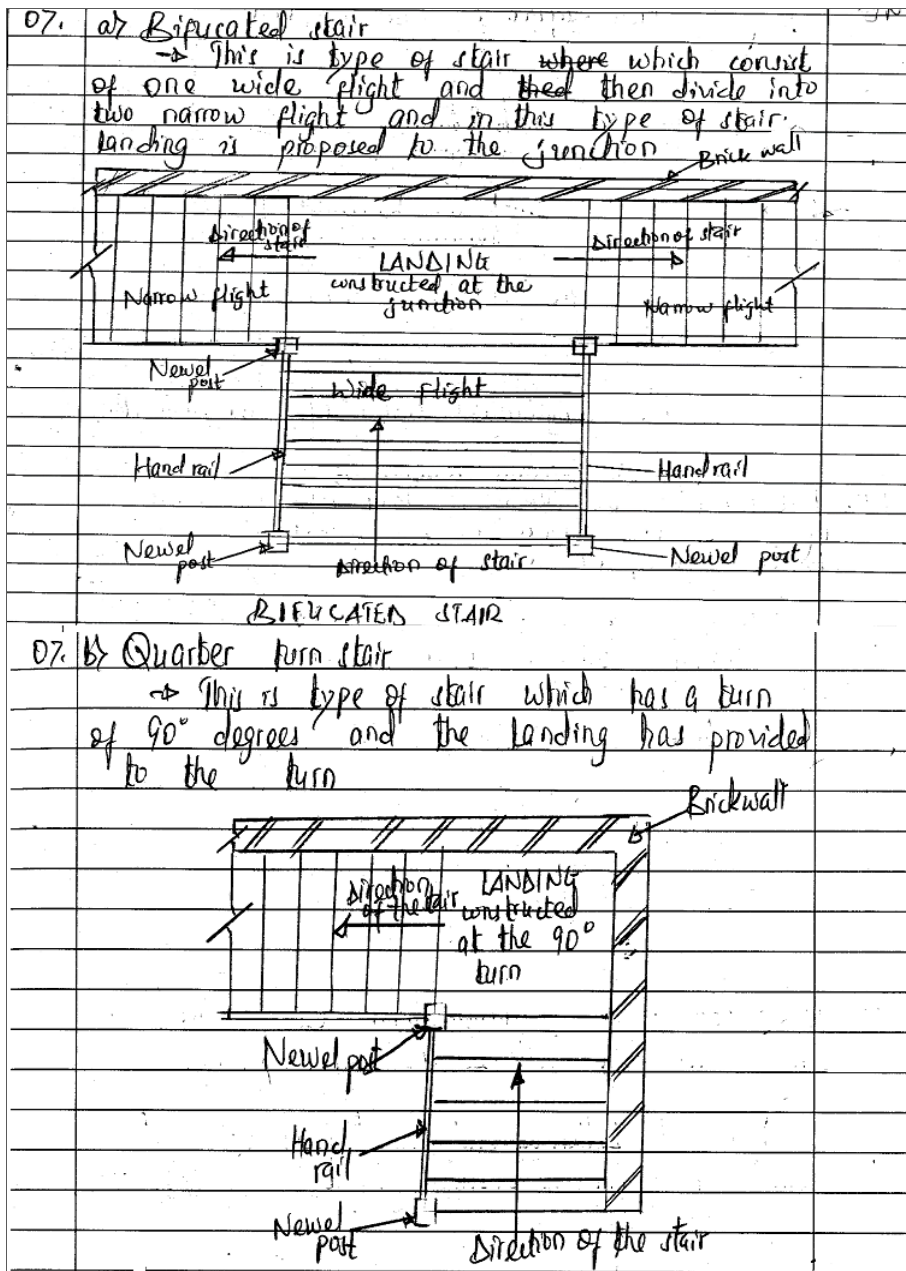 07. a) Bifucated stair
→ This is type of stair where which consist
of one wide flight and thed then divide into
two narrow flight and in this type of stair.
landing is proposed to the junction
Brick wall
Direction of
stair
LANDING
constructed at the
junction
Direction of stair
Narrow flight
Narrow flight
Newel
post
Wide flight
Hand rail
Handrail
Newel
post
Direction of stair
Newel post
BIFUCATED STAIR
07. b) Quarter turn stair
→ This is type of stair which has a turn
of 90° degrees and the landing has provided
to the turn
Brickwall
Direction
of the stair
LANDING
constructed
at the 90°
turn
Newel post
Hand
rail
Newel
post
Direction of the stair